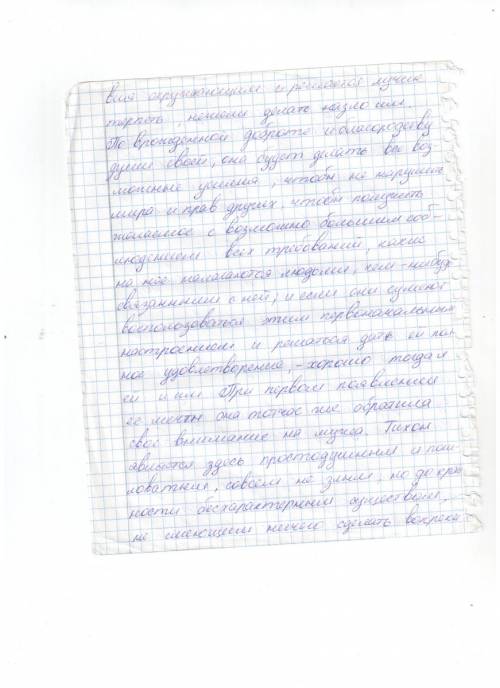 вия окружающим и решается лучше
терпеть, нежели делать назло им.
По врожденной доброте и благородству
души своей, она будет делать все воз
можные усилия, чтобы не нарушить
мира и прав других, чтобы получить
желаемое с возможно большим соб-
людением всех требований, какие
на нее налагаются людьми, чем-нибудь
связанными с ней; и если они сумеют
воспользоваться этим первоначальным
настроением и решатся дать ей пол
ное удовлетворение, - хорошо тогда и
ей и им При первом появлении
ее мечты она тотчас же обратила
свое внимание на мужа. Тихон
является здесь простодушным и пош-
ловатым, совсем не злым, но до край
ности бесхарактерным существом,
не смеющим ничего сделать вопреки